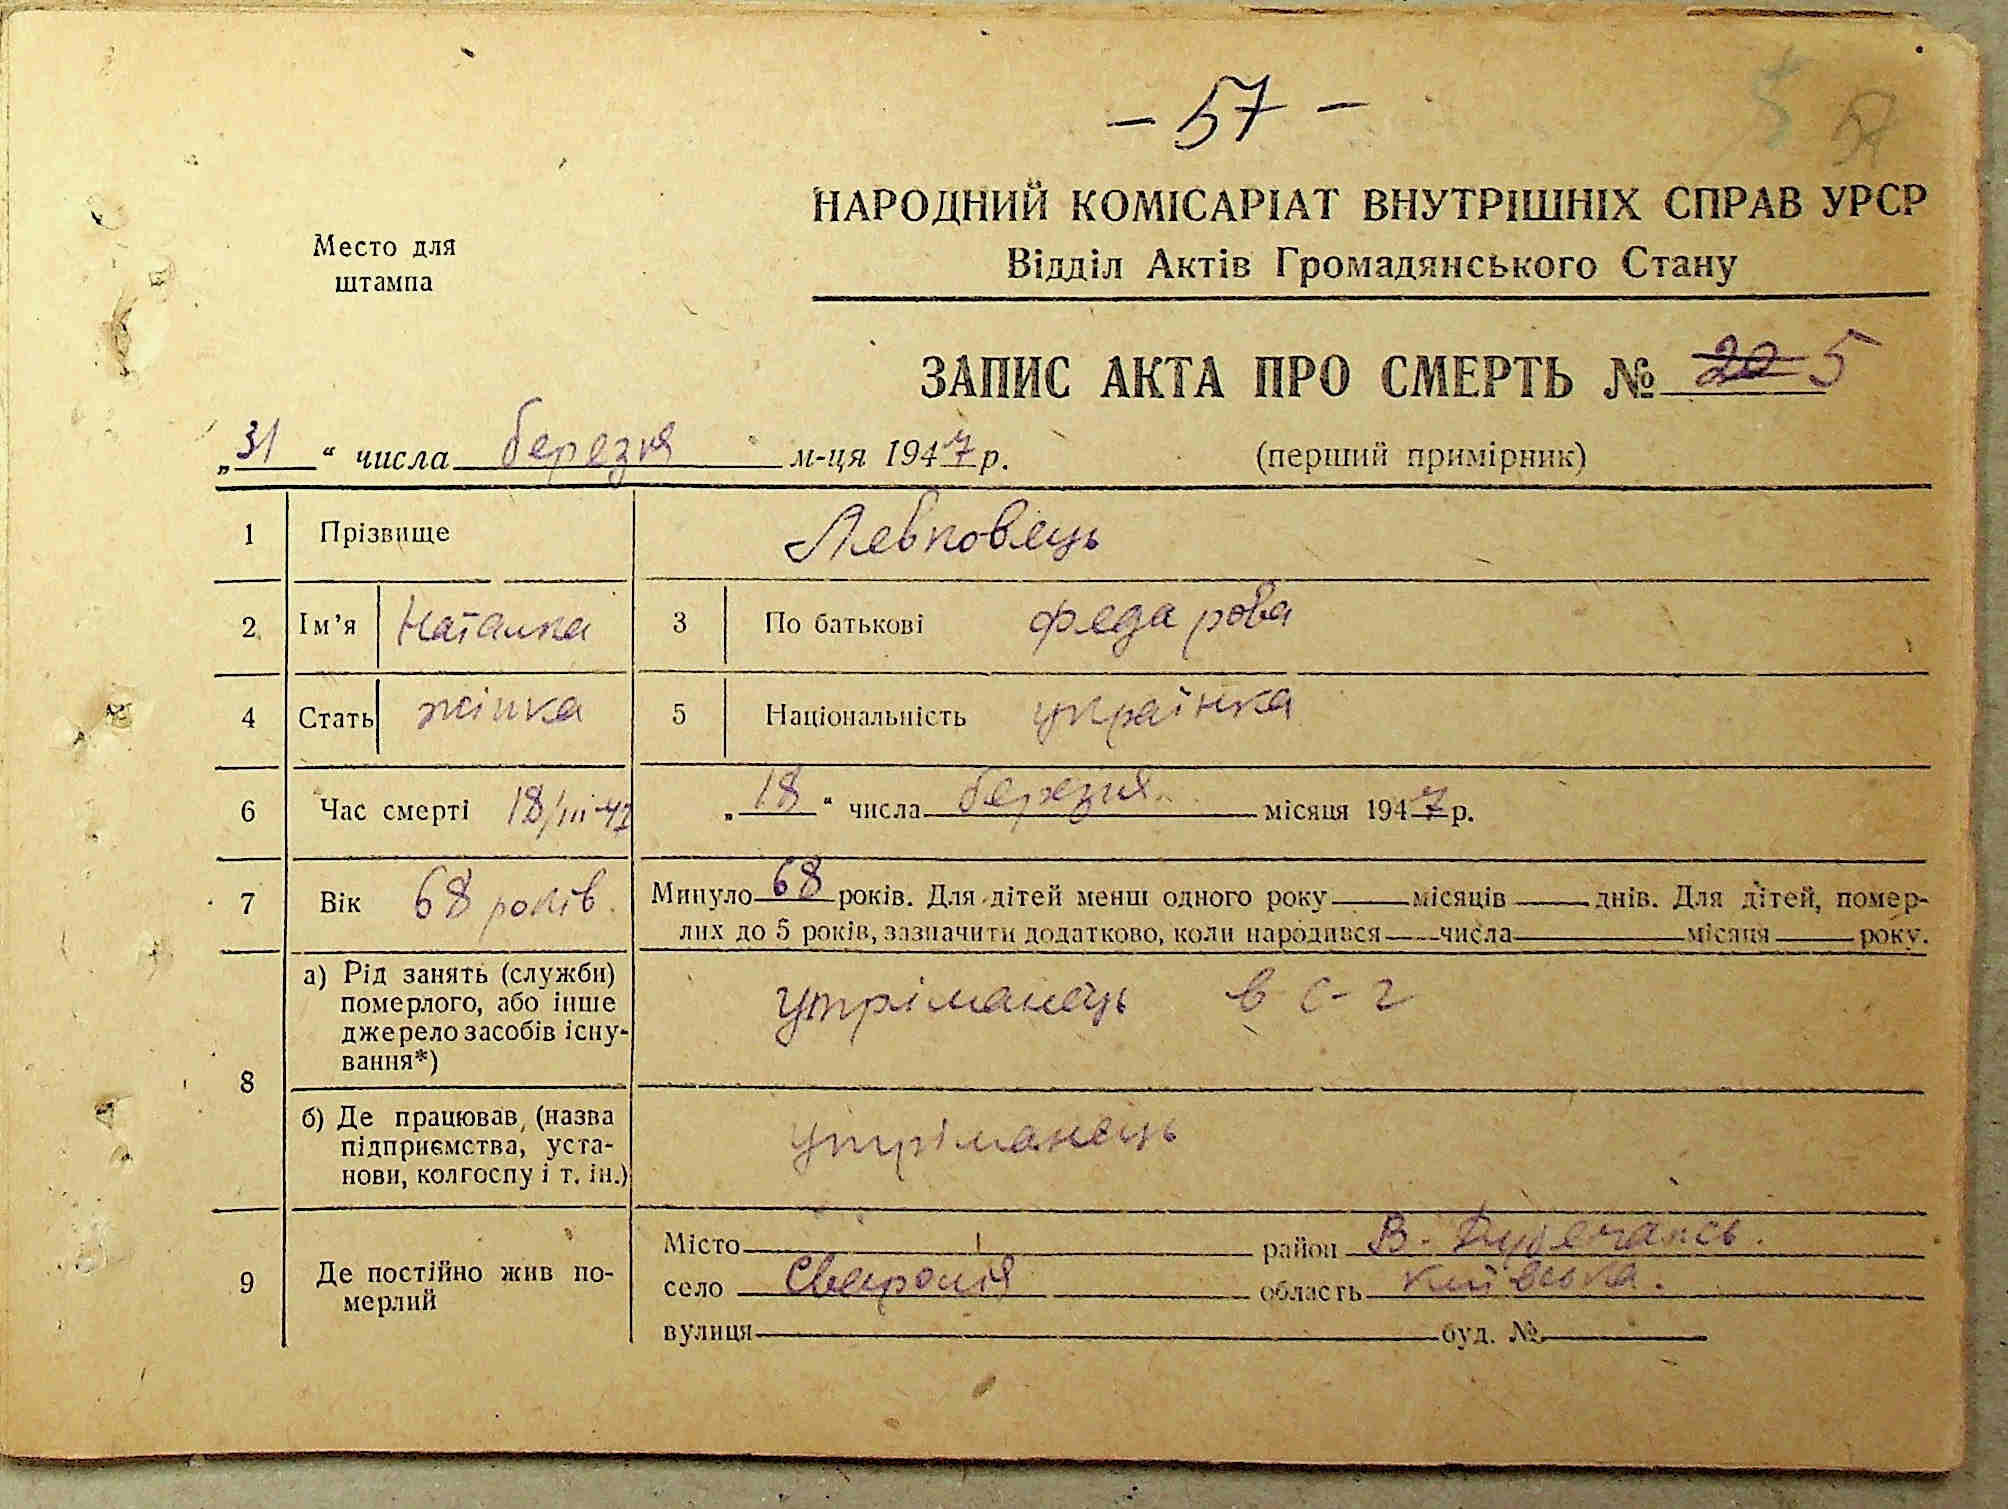 - 57 -
5 57
Место для
штампа
НАРОДНИЙ КОМІСАРІАТ ВНУТРІШНІХ СПРАВ УРСР
Відділ Актів Громадянського Стану
ЗАПИС АКТА ПРО СМЕРТЬ № 20 5
„31“ числа березня м-ця 1947 р. (перший примірник)
1 Прізвище Левковець
2 Ім’я Наталка 3 По батькові Федарова
4 Стать жінка 5 Національність українка
6 Час смерті 18/III-47 „18“ числа березня місяця 1947 р.
7 Вік 68 років. Минуло 68 років. Для дітей менш одного року місяців днів. Для дітей, помер-
лих до 5 років, зазначити додатково, коли народився числа місяця року.
8 а) Рід занять (служби)
померлого, або інше
джерело засобів існу-
вання*) утріманець в с-г
б) Де працював, (назва
підприємства, уста-
нови, колгоспу і т. ін.) утріманець
9 Де постійно жив по-
мерлий
Місто район В-
село область Київська.
вулиця буд. №